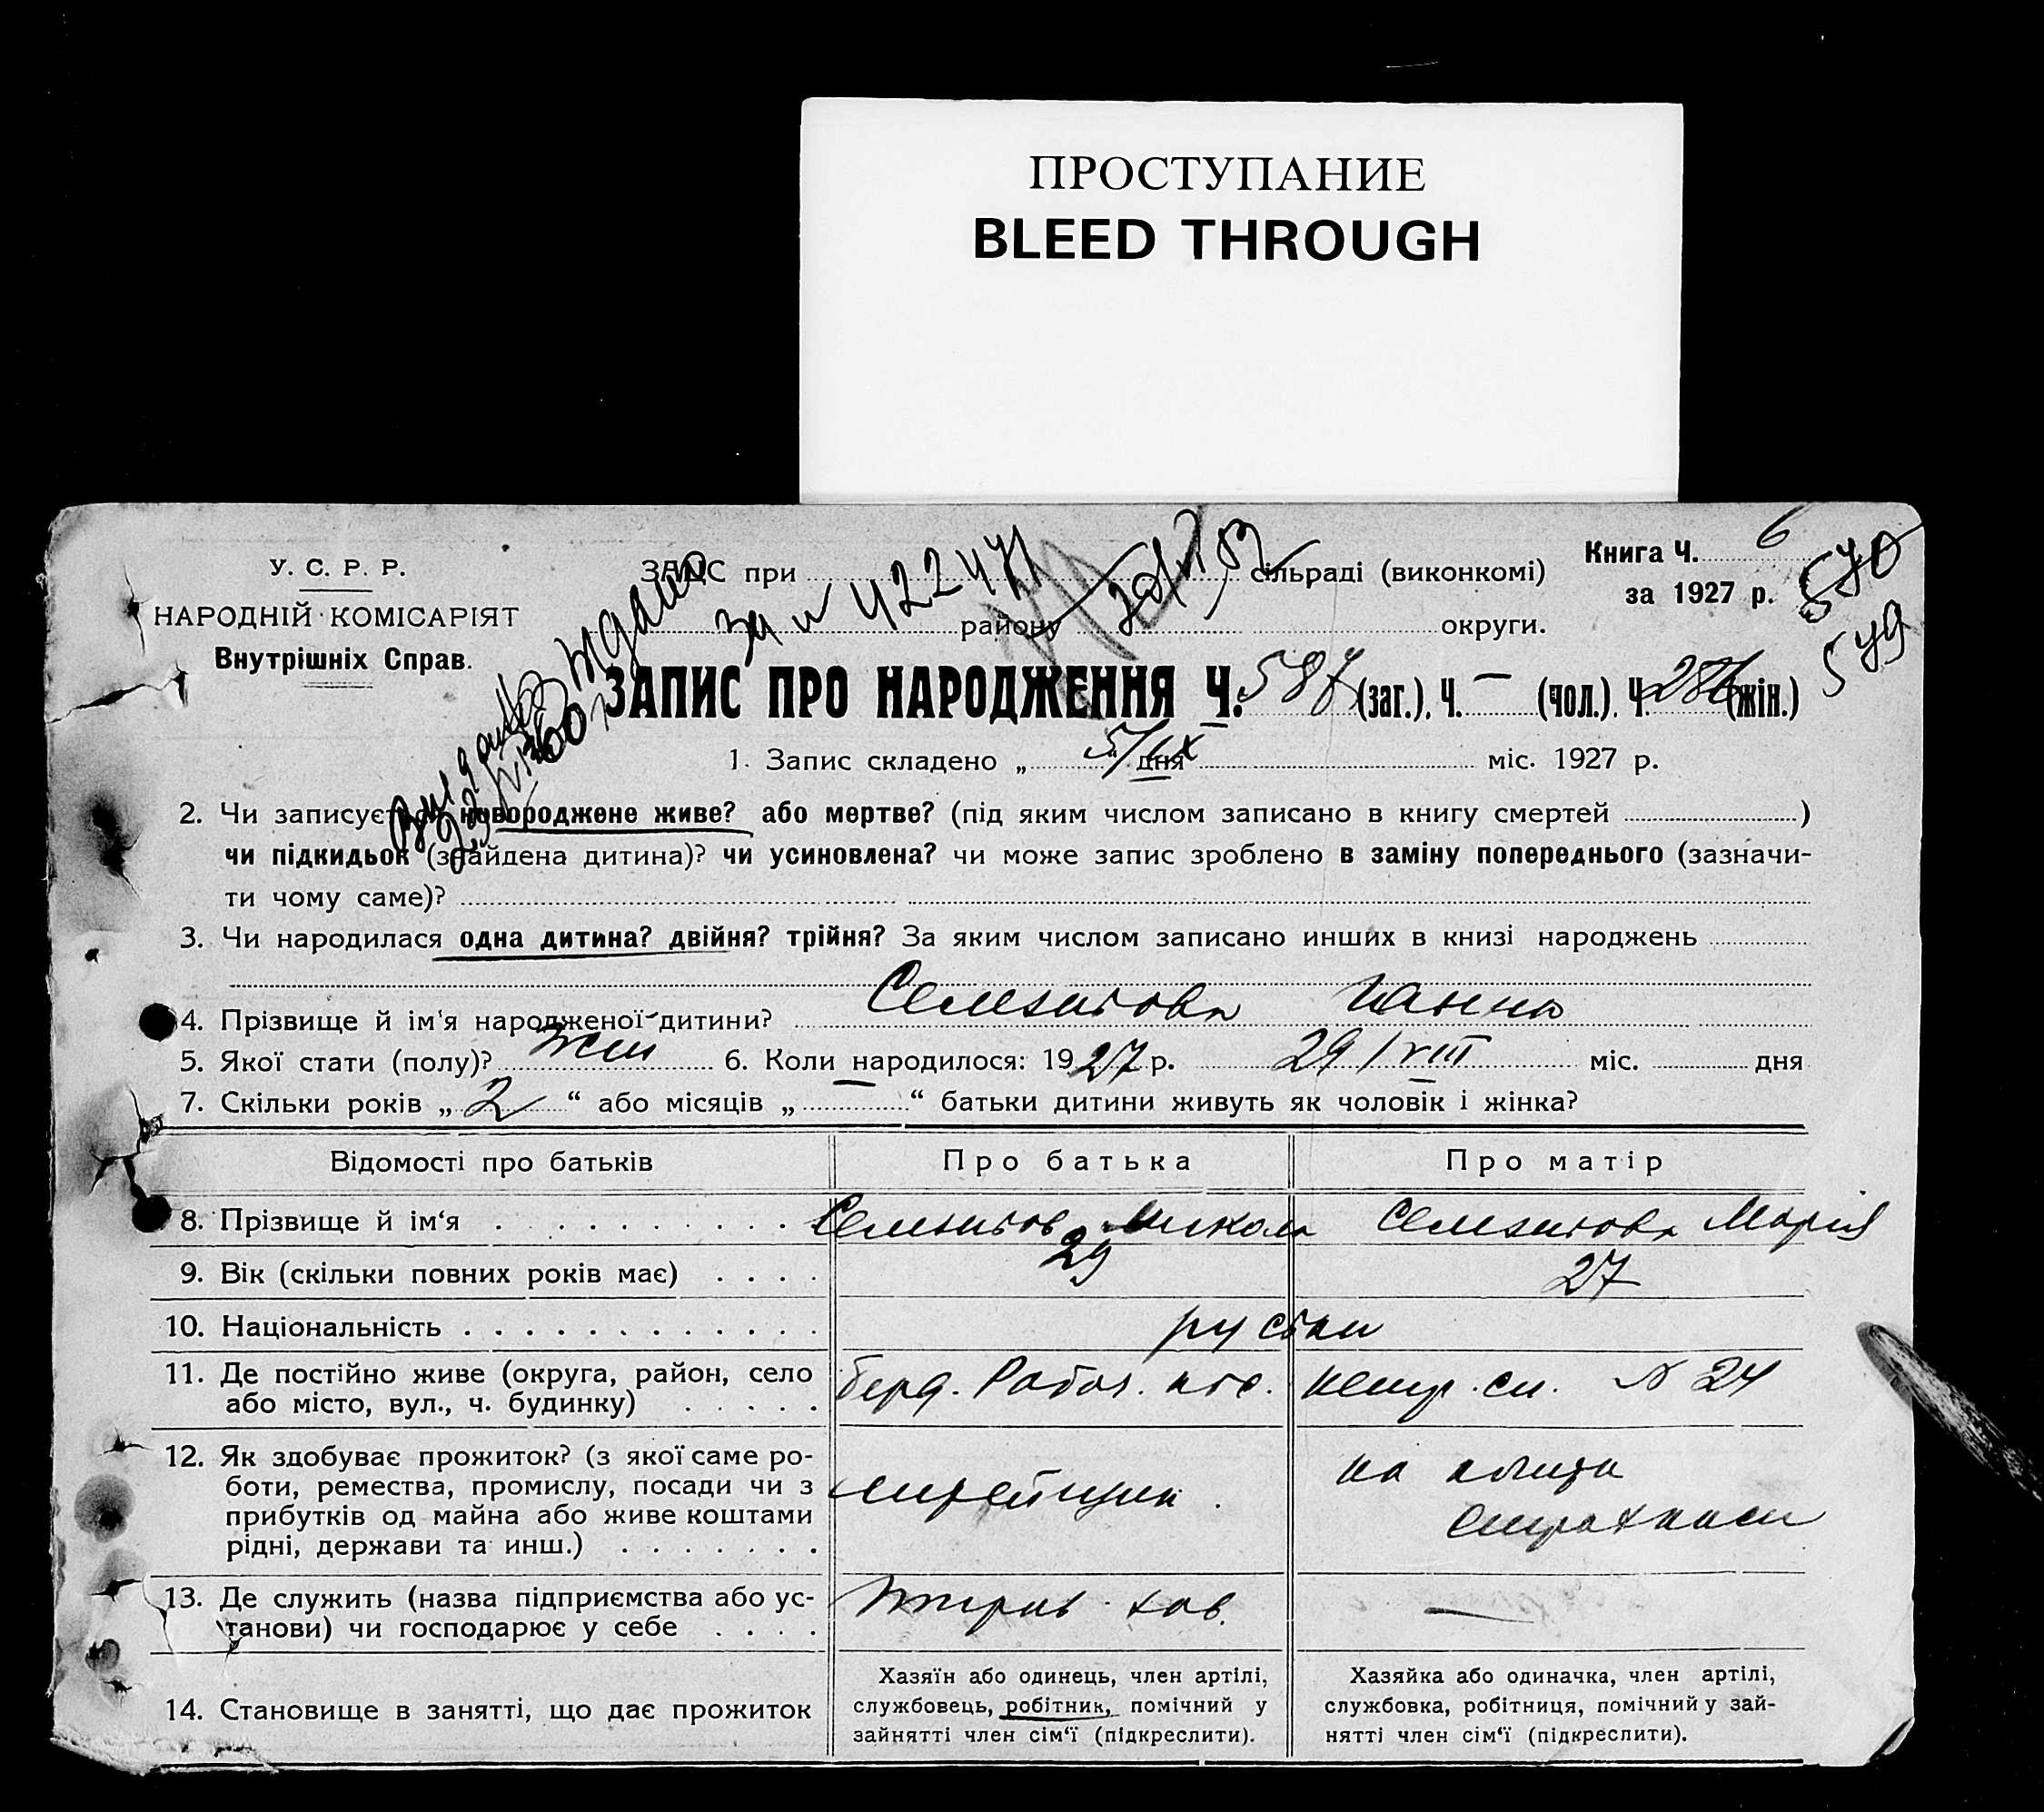 ПРОСТУПАНИЕ
BLEED THROUGH
У. С. Р. Р.
НАРОДНІЙ КОМІСАРІЯТ
Внутрішніх Справ.
ЗАГС при сільраді (виконкомі)
району округи.
за N 422471
Книга Ч. 6
за 1927 р.
570
549
ЗАПИС ПРО НАРОДЖЕННЯ Ч. 587 (заг.), Ч. — (чол.), Ч. 286 (жін.)
1. Запис складено „ 5/IX “ дня міс. 1927 р.
2. Чи записується новороджене живе? або мертве? (під яким числом записано в книгу смертей )
чи підкидьок (знайдена дитина)? чи усиновлена? чи може запис зроблено в заміну попереднього (зазначи-
ти чому саме)?
3. Чи народилася одна дитина? двійня? трійня? За яким числом записано инших в книзі народжень
4. Прізвище й ім'я народженої дитини? Ганна
5. Якої стати (полу)? жін 6. Коли народилося: 1927 р. 29/VIII міс. дня
7. Скільки років „ 2 “ або місяців „ — “ батьки дитини живуть як чоловік і жінка?
Відомості про батьків Про батька Про матір
8. Прізвище й ім‘я Микола Марія
9. Вік (скільки повних років має) 29 27
10. Національність руські
11. Де постійно живе (округа, район, село
або місто, вул., ч. будинку) N 24
12. Як здобуває прожиток? (з якої саме ро-
боти, ремества, промислу, посади чи з
прибутків од майна або живе коштами
рідні, держави та инш.)
на кошти
страхкаси
13. Де служить (назва підприємства або ус-
танови) чи господарює у себе —
14. Становище в занятті, що дає прожиток
Хазяїн або одинець, член артілі,
службовець, робітник, помічний у
зайнятті член сім‘ї (підкреслити).
Хазяйка або одиначка, член артілі,
службовка, робітниця, помічний у зай-
нятті член сім‘ї (підкреслити).